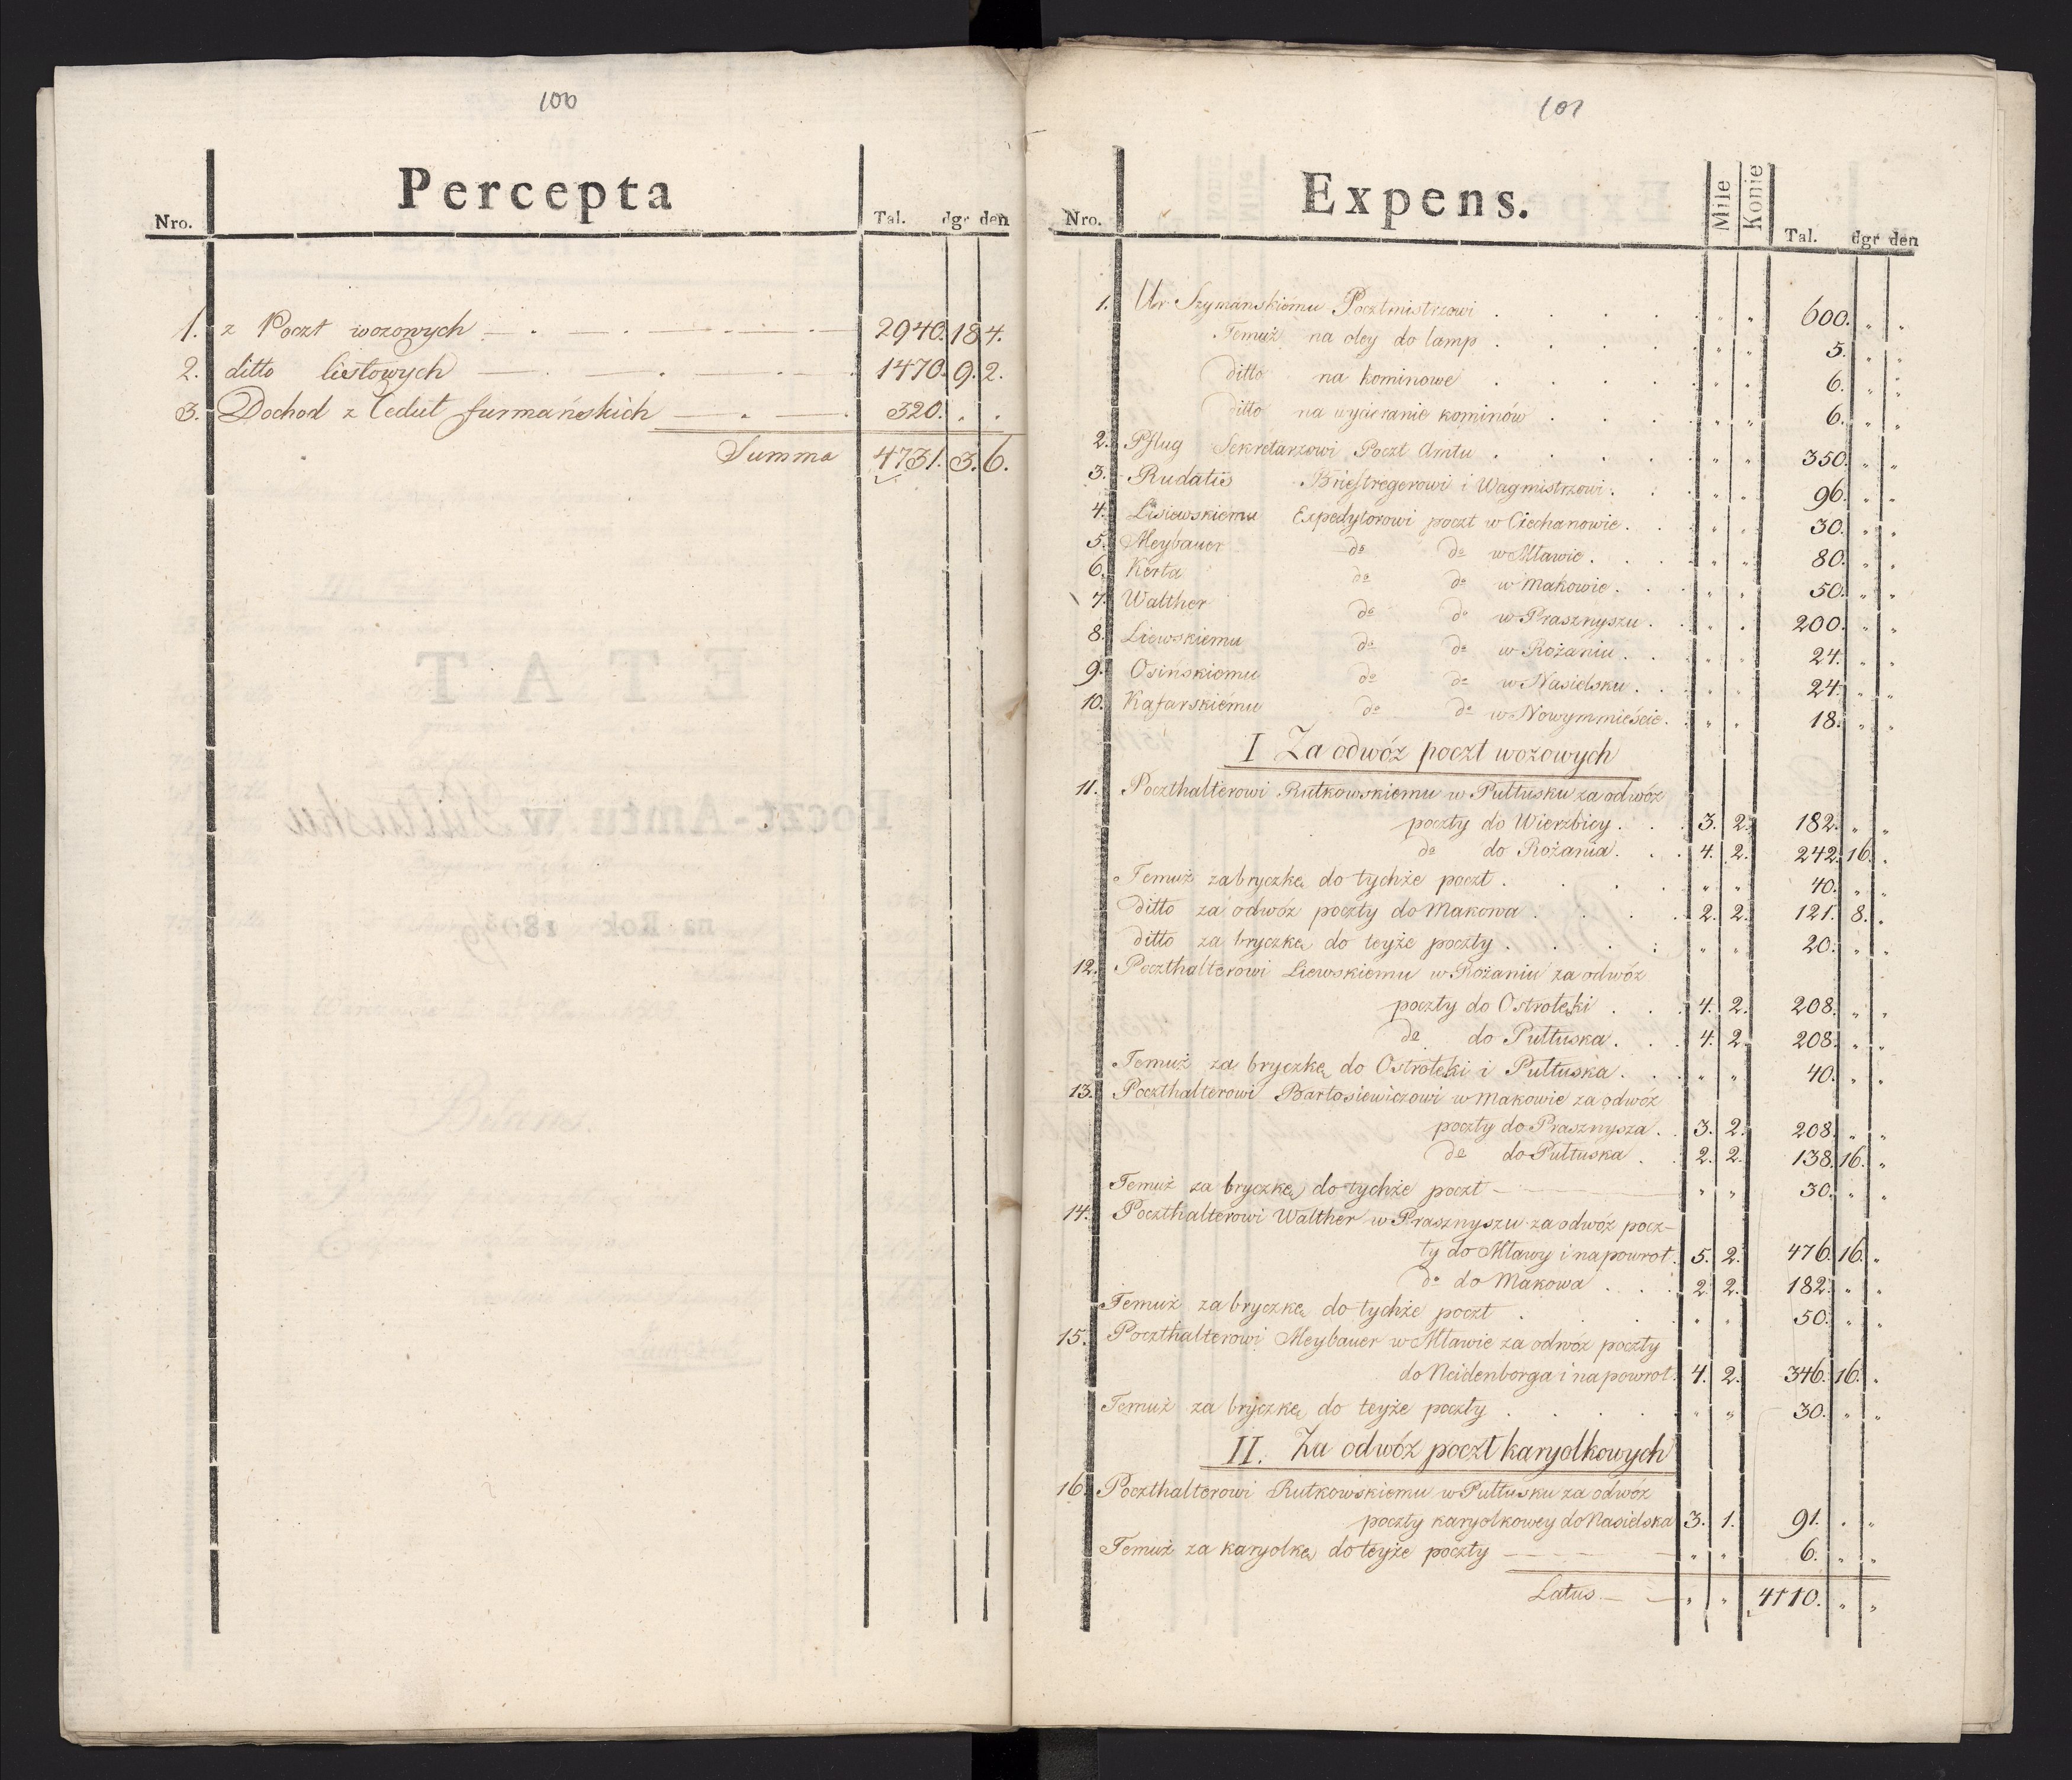 100
Percepta
Nro. Tal. dgr den
1. z Poczt wozowych 2940. 18 4.
2. ditto listowych 1470. 9. 2.
3. Dochod z Cedul furmańskich 320. . .
Summa 4731. 3. 6.
101
Expens.
Nro. Mile Konie Tal. dgr den
1. Ur Szymanskiemu Pocztmistrzowi . . . . . " " 600. " "
Temuż na oley do lamp . . . . . " " 5. " "
ditto na kominowe . . . . " " 6. " "
ditto na wycieranie kominów . . . . " " 6. " "
2. Pflug Sekretarzowi Poczt Amtu . . . . . " " 350. " "
3. Rudatis Brieftregerowi i Wagmistrzowi . . . " " 96. " "
4. Lisiewskiemu Expedytorowi poczt w Ciechanowie . . " " 30. " "
5. Meybauer do do w Mławie . . . " " 80. " "
6. Kerta do do w Makowie . . . " " 50. " "
7. Walther do do w Prasznyszu . . " " 200. " "
8. Liewskiemu do do w Rożaniu . . " " 24. " "
9. Osińskiemu do do w Nasielsku . . " " 24. " "
10. Kafarskiému do do w Nowymmieście . . " " 18. " "
I Za odwóz poczt wozowych
11. Poczthalterowi Rutkowskiemu w Pułtusku za odwóz
poczty do Wierzbicy . . . 3. 2. 182. " "
do do Rożania . . . 4. 2. 242. 16. "
Temuż za bryczkę do tychże poczt . . . . " " 40. " "
ditto za odwóz poczty do Makowa . . . . 2. 2. 121. 8. "
ditto za bryczkę do teyże poczty . . . . " " 20. " "
12. Poczthalterowi Liewskiemu w Rożaniu za odwóz
poczty do Ostrołęki . . . 4. 2. 208. " "
do do Pułtuska . . . 4. 2. 208. " "
Temuż za bryczkę do Ostrołęki i Pułtuska . . " " 40. " "
13. Poczthalterowi Bartosiewiczowi w Makowie za odwóz
poczty do Prasznysza . . 3. 2. 208. " "
do do Pułtuska . . 2. 2. 138. 16. "
Temuż za bryczkę do tychże poczt " " 30. " "
14. Poczthalterowi Walther w Prasznyszu za odwóz pocz-
ty do Mławy i na powrot . 5. 2. 476. 16. "
do do Makowa . . . 2. 2. 182. " "
Temuż za bryczkę do tychże poczt . . . . " " 50. " "
15. Poczthalterowi Meybauer w Mławie za odwóz poczty
do Neidenborga i na powrot . 4. 2. 346. 16. "
Temuż za bryczkę do teyże poczty . . . . " " 30. " "
II. Za odwóz poczt karyolkowych
16. Poczthalterowi Rutkowskiemu w Pułtusku za odwóz
poczty karyolkowey do Nasielska 3. 1. 91. " "
Temuż za karyolkę do teyże poczty " " 6. " "
Latus " " 4110. " "